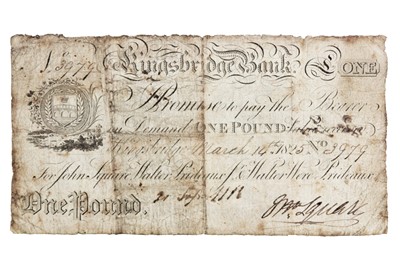 No. 3979 Kingsbridge Bank. £ ONE
I Promise to pay the Bearer
on Demand ONE POUND
Kingsbridge March 1825 No 3979
For John Square Walter Prideaux & Walter Were Prideaux.
One Pound.
Jno Square